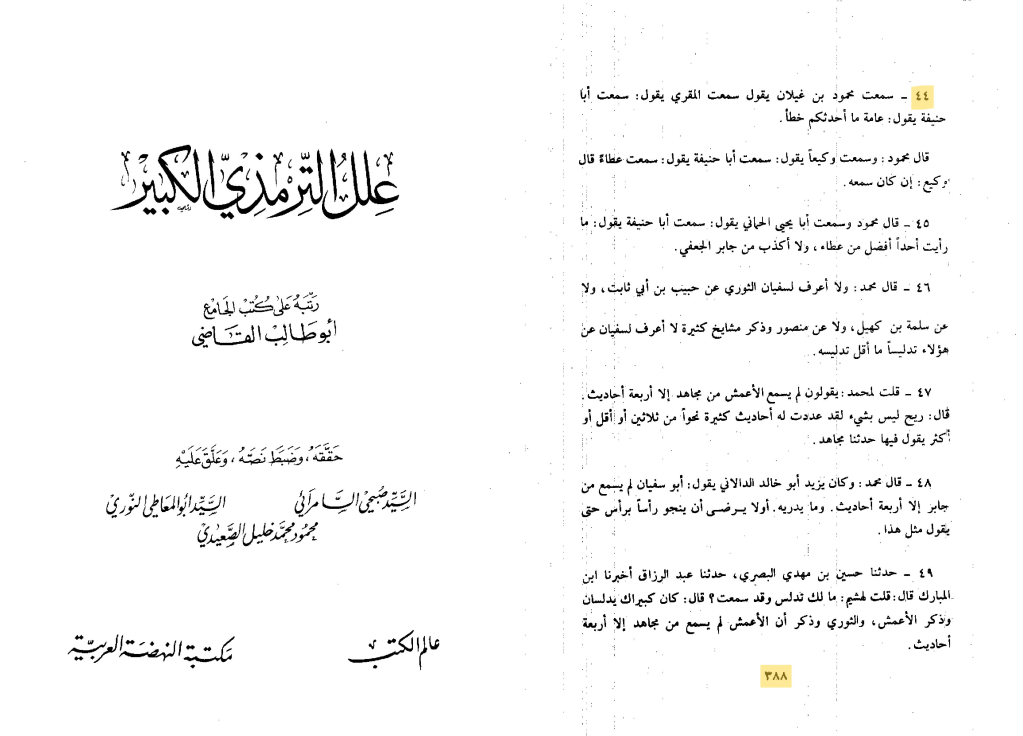 علل الترمذي الكبير
رتبه على كتب الجامع
أبو طالب القاضي
حققه، وضبط نصه، وعلق عليه
السيد صبحي السامرائي السيد أبو المعاطي النوري
محمود محمد خليل الصعيدي
عالم الكتب مكتبة النهضة العربية
٤٤ - سمعت محمود بن غيلان يقول سمعت المقري يقول: سمعت أبا
حنيفة يقول: عامة ما أحدثكم خطأ.
قال محمود: وسمعت وكيعاً يقول: سمعت أبا حنيفة يقول: سمعت عطاءً قال
وكيع: إن كان سمعه.
٤٥ - قال محمود وسمعت أبا يحيى الحماني يقول: سمعت أبا حنيفة يقول: ما
رأيت أحداً أفضل من عطاء، ولا أكذب من جابر الجعفي.
٤٦ - قال محمد: ولا أعرف لسفيان الثوري عن حبيب بن أبي ثابت، ولا
عن سلمة بن كهيل، ولا عن منصور وذكر مشايخ كثيرة لا أعرف لسفيان عن
هؤلاء تدليساً ما أقل تدليسه.
٤٧ - قلت لمحمد: يقولون لم يسمع الأعمش من مجاهد إلا أربعة أحاديث.
قال: ريح ليس بشيء لقد عددت له أحاديث كثيرة نحواً من ثلاثين أو أقل أو
أكثر يقول فيها حدثنا مجاهد.
٤٨ - قال محمد: وكان يزيد أبو خالد الدالاني يقول: أبو سفيان لم يسمع من
جابر إلا أربعة أحاديث. وما يدريه. أولا يرضى أن ينجو رأساً برأس حتى
يقول مثل هذا.
٤٩ - حدثنا حسين بن مهدي البصري، حدثنا عبد الرزاق أخبرنا ابن
المبارك قال: قلت لهشيم: ما لك تدلس وقد سمعت؟ قال: كان كبيراك يدلسان
وذكر الأعمش، والثوري وذكر أن الأعمش لم يسمع من مجاهد إلا أربعة
أحاديث.
٣٨٨